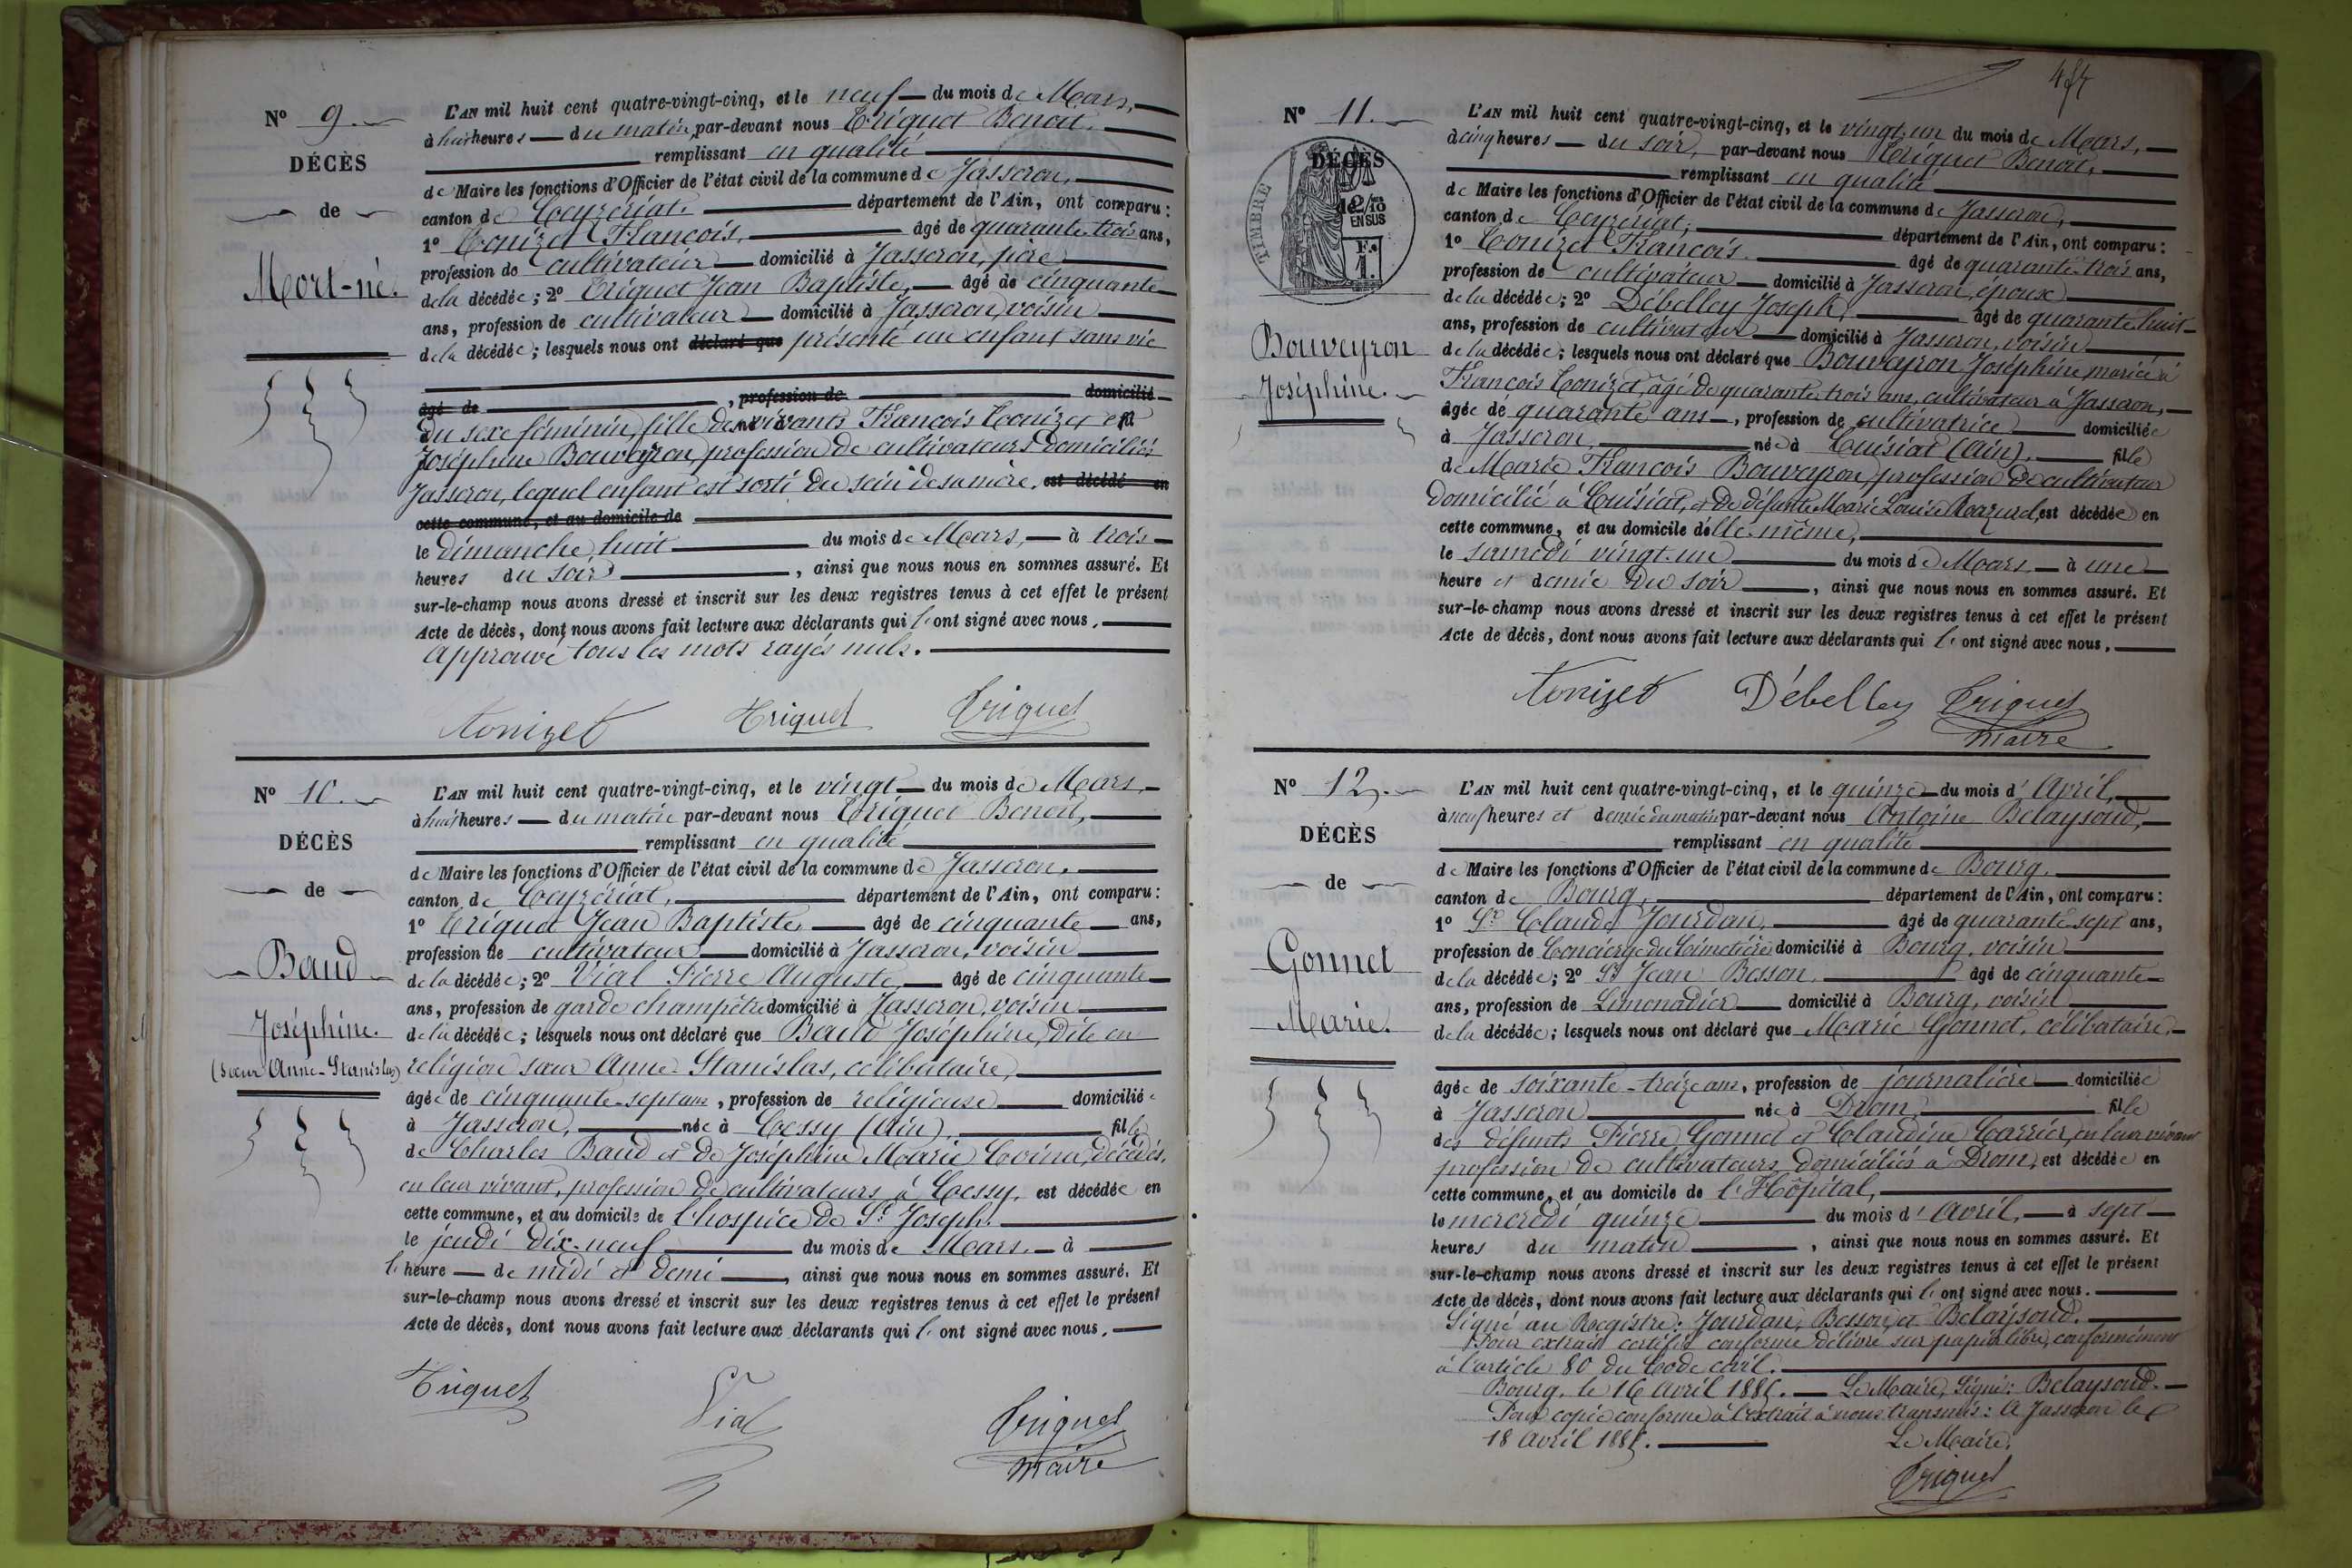 Nº 9.
DÉCÈS
de
Mort-né.
L'AN mil huit cent quatre-vingt-cinq, et le neuf du mois de Mars,
à huit heures du matin, par-devant nous Triquet Benoit,
remplissant en qualité
de Maire les fonctions d'Officier de l'état civil de la commune de Jasseron,
canton de Ceyzériat, département de l'Ain, ont comparu :
1º Convert François, âgé de quarante-trois ans,
profession de cultivateur domicilié à Jasseron, père
de la décédée ; 2º Triquet Jean Baptiste, âgé de cinquante
ans, profession de cultivateur domicilié à Jasseron, voisin
de la décédée ; lesquels nous ont déclaré que présenté un enfant sans vie
âgé de , profession de domicilié
du sexe féminin, fille des vivants François et
Joséphine Bouveyron, profession de cultivateurs domiciliés
Jasseron, lequel enfant est sorti du sein de sa mère, est décédé en
cette commune, et au domicile de
le dimanche huit du mois de Mars, à trois
heures du soir , ainsi que nous nous en sommes assuré. Et
sur-le-champ nous avons dressé et inscrit sur les deux registres tenus à cet effet le présent
Acte de décès, dont nous avons fait lecture aux déclarants qui l'ont signé avec nous,
Approuvé tous les mots rayés nuls.
Tonizet Triquet Triquet
Nº 10.
DÉCÈS
de
Baud
Joséphine.
(Soeur Anne-Stanislas)
L'AN mil huit cent quatre-vingt-cinq, et le vingt du mois de Mars,
à huit heures du matin par-devant nous Triquet Benoit,
remplissant en qualité
de Maire les fonctions d'Officier de l'état civil de la commune de Jasseron,
canton de Ceyzériat, département de l'Ain, ont comparu :
1º Triquet Jean Baptiste, âgé de cinquante ans,
profession de cultivateur domicilié à Jasseron, voisin
de la décédée ; 2º Vial Pierre Auguste, âgé de cinquante
ans, profession de garde champêtre domicilié à Jasseron, voisin
de la décédée ; lesquels nous ont déclaré que Baud Joséphine, dite en
religion sœur Anne-Stanislas, célibataire,
âgée de cinquante-sept ans, profession de religieuse domiciliée
à Jasseron, née à Cessy (Ain), fille
de Charles Baud et de Joséphine Marie , décédés,
en leur vivant, profession de cultivateurs à Cessy, est décédée en
cette commune, et au domicile de l'hospice de St Joseph.
le jeudi dix-neuf du mois de Mars, à
l'heure de midi et demi , ainsi que nous nous en sommes assuré. Et
sur-le-champ nous avons dressé et inscrit sur les deux registres tenus à cet effet le présent
Acte de décès, dont nous avons fait lecture aux déclarants qui l'ont signé avec nous,
Triquet Vial Triquet
maire
Nº 11.
DÉCÈS
TIMBRE
2/10
EN SUS
F.
1.
Bouveyron
Joséphine.
L'AN mil huit cent quatre-vingt-cinq, et le vingt-un du mois de Mars,
à cinq heures du soir, par-devant nous Triquet Benoit,
remplissant en qualité
de Maire les fonctions d'Officier de l'état civil de la commune de Jasseron,
canton de Ceyzériat, département de l'Ain, ont comparu :
1º Tonizet François, âgé de quarante-trois ans,
profession de cultivateur domicilié à Jasseron, époux
de la décédée ; 2º Débelley Joseph, âgé de quarante-huit
ans, profession de cultivateur domicilié à Jasseron, voisin
de la décédée ; lesquels nous ont déclaré que Bouveyron Joséphine mariée à
François Tonizet, âgé de quarante-trois ans, cultivateur à Jasseron,
âgée de quarante ans, profession de cultivatrice domiciliée
à Jasseron, née à Cuisiat (Ain), fille
de Marie François Bouveyron, profession de cultivateur
domicilié à Cuisiat, et de défunte Marie Louise , est décédée en
cette commune, et au domicile d'elle-même,
le samedi vingt-un du mois de Mars, à une
heure et demie du soir , ainsi que nous nous en sommes assuré. Et
sur-le-champ nous avons dressé et inscrit sur les deux registres tenus à cet effet le présent
Acte de décès, dont nous avons fait lecture aux déclarants qui l'ont signé avec nous,
Tonizet Débelley Triquet
maire
Nº 12.
DÉCÈS
de
Gonnet
Marie.
L'AN mil huit cent quatre-vingt-cinq, et le quinze du mois d'Avril,
à neuf heures et demie du matin par-devant nous Antoine Belaysoud,
remplissant en qualité
de Maire les fonctions d'Officier de l'état civil de la commune de Bourg,
canton de Bourg, département de l'Ain, ont comparu :
1º Sr Claude Jourdan, âgé de quarante-sept ans,
profession de Concierge du Cimetière domicilié à Bourg, voisin
de la décédée ; 2º Sr Jean Besson, âgé de cinquante
ans, profession de Limonadier domicilié à Bourg, voisin
de la décédée ; lesquels nous ont déclaré que Marie Gonnet, célibataire,
âgée de soixante-treize ans, profession de journalière domiciliée
à Jasseron née à Drom, fille
des défunts Pierre Gonnet et Claudine Carrier, en leur vivant
profession de cultivateurs domiciliés à Drom, est décédée en
cette commune, et au domicile de l'Hôpital,
le mercredi quinze du mois d'Avril, à sept
heures du matin , ainsi que nous nous en sommes assuré. Et
sur-le-champ nous avons dressé et inscrit sur les deux registres tenus à cet effet le présent
Acte de décès, dont nous avons fait lecture aux déclarants qui l'ont signé avec nous.
Signé au Registre: Jourdan, Besson et Belaysoud.
Pour extrait certifié conforme délivré sur papier libre, conformément
à l'article 80 du Code civil.
Bourg, le 16 Avril 1885. Le Maire, Signé: Belaysoud.
Pour copie conforme à l'extrait à nous transmis: A Jasseron le
18 Avril 1885. Le Maire,
Triquet